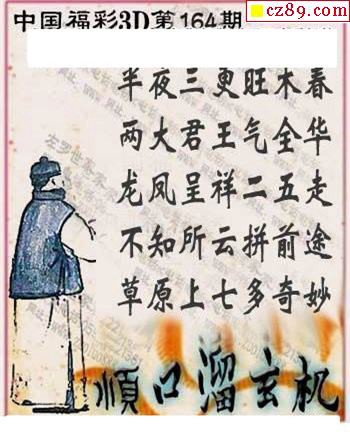 cz89.com
中国福彩3D第164期
半夜三更旺木春
两大君王气全华
龙凤呈祥二五走
不知所云拼前途
草原上七多奇妙
顺口溜玄机